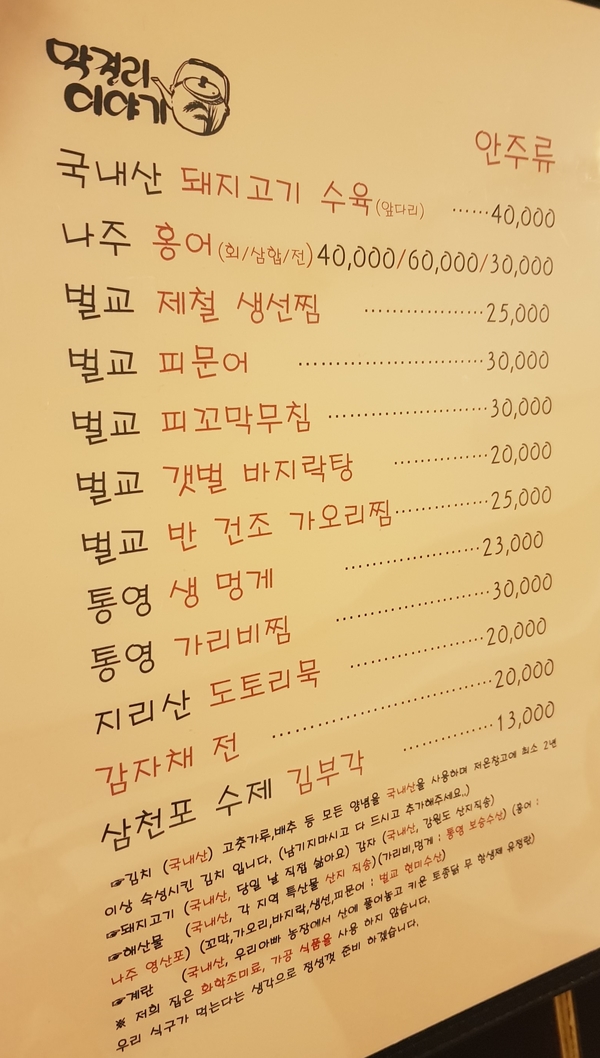 막걸리
이야기
안주류
국내산 돼지고기 수육(앞다리) ······40,000
나주 홍어(회/삼합/전) 40,000/60,000/30,000
벌교 제철 생선찜 ··················25,000
벌교 피문어 ····························30,000
벌교 피꼬막무침 ························30,000
벌교 갯벌 바지락탕 ··············20,000
벌교 반 건조 가오리찜··············25,000
통영 생 멍게 ····················23,000
통영 가리비찜 ·······················30,000
지리산 도토리묵 ····················20,000
감자채 전 ································20,000
삼천포 수제 김부각 ·············13,000
☞김치 (국내산) 고춧가루,배추 등 모든 양념을 국내산을 사용하며 저온창고에 최소 2년
이상 숙성시킨 김치 입니다. (남기지마시고 다 드시고 추가해주세요..)
☞돼지고기 (국내산, 당일 날 직접 삶아요) 감자 (국내산, 강원도 산지직송)
☞해산물 (국내산, 각 지역 특산물 산지 직송)(가리비,멍게 : 통영 보승수산) (홍어 :
나주 영산포) (꼬막,가오리,바지락,생선,피문어 : 벌교 현미수산)
☞계란 (국내산, 우리아빠 농장에서 산에 풀어놓고 키운 토종닭 무 항생제 유정란)
※ 저희 집은 화학조미료, 가공 식품을 사용 하지 않습니다.
우리 식구가 먹는다는 생각으로 정성껏 준비 하겠습니다.